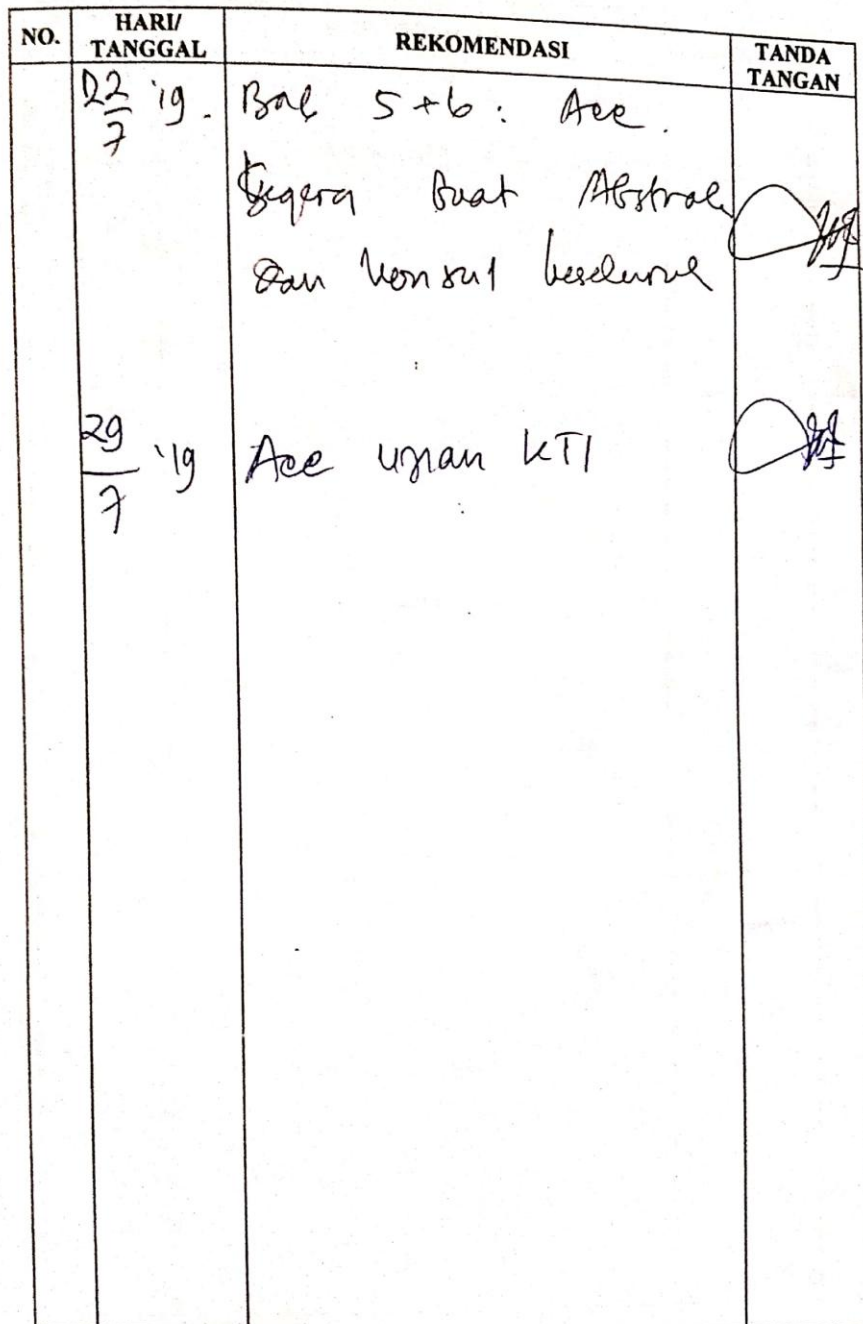 NO. HARI/ TANGGAL REKOMENDASI TANDA TANGAN
22/7 '19. Bab 5+6: Acc.
Segera buat Abstrak
dan konsul keseluruh
29/7 '19 Acc ujian KTI